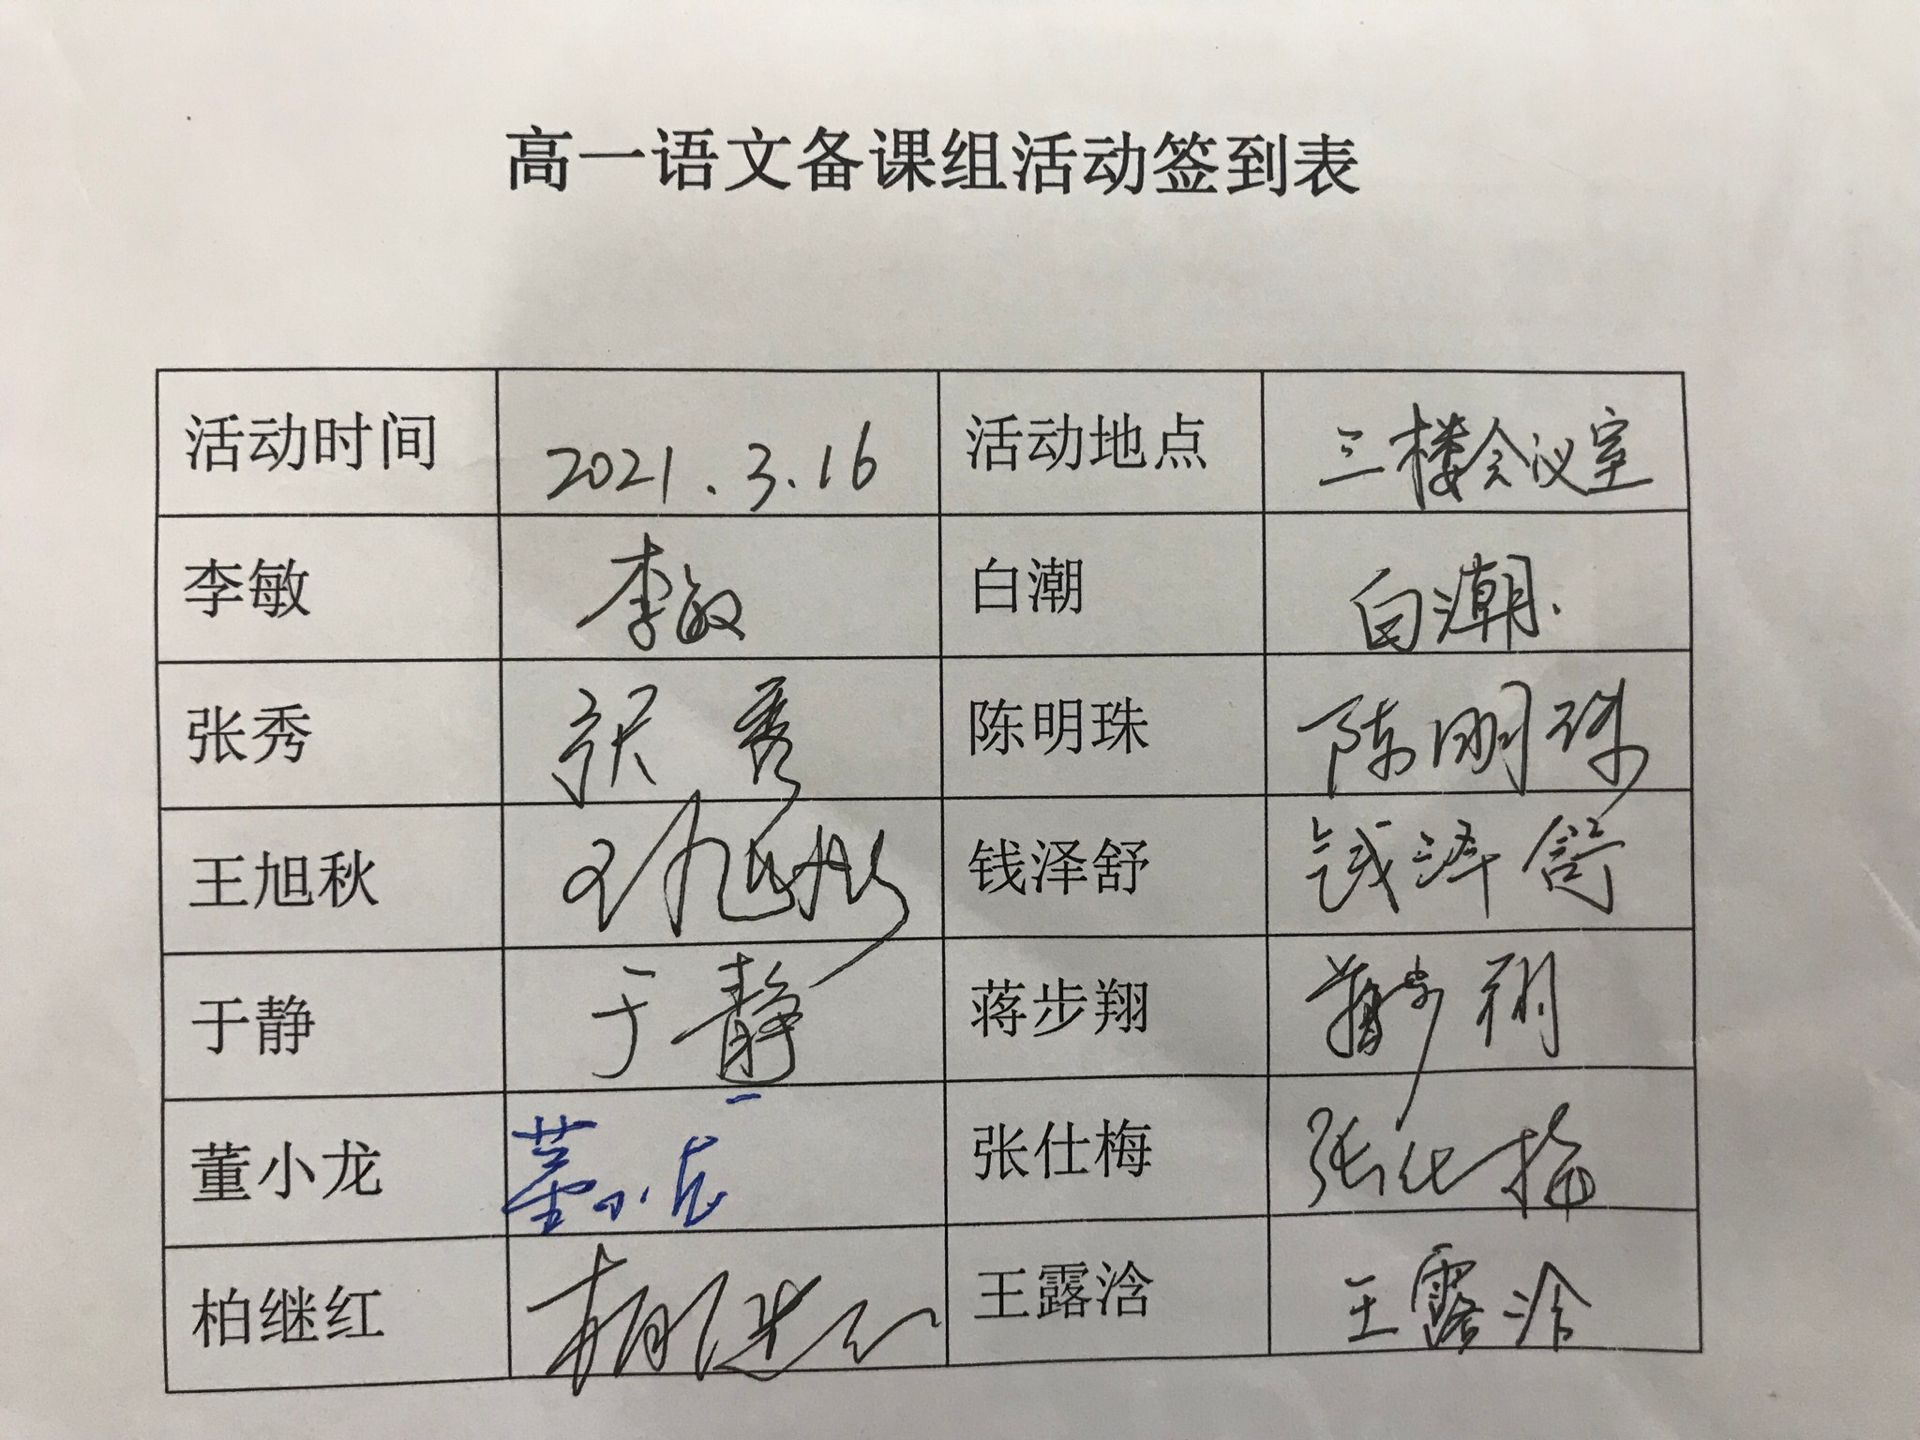 高一语文备课组活动签到表
活动时间 2021.3.16 活动地点 三楼会议室
李敏 李敏 白潮 白潮.
张秀 张秀 陈明珠 陈明珠
王旭秋 王旭秋 钱泽舒 钱泽舒
于静 于静 蒋步翔 蒋步翔
董小龙 董小龙 张仕梅 张仕梅
柏继红 柏继红 王露浛 王露浛